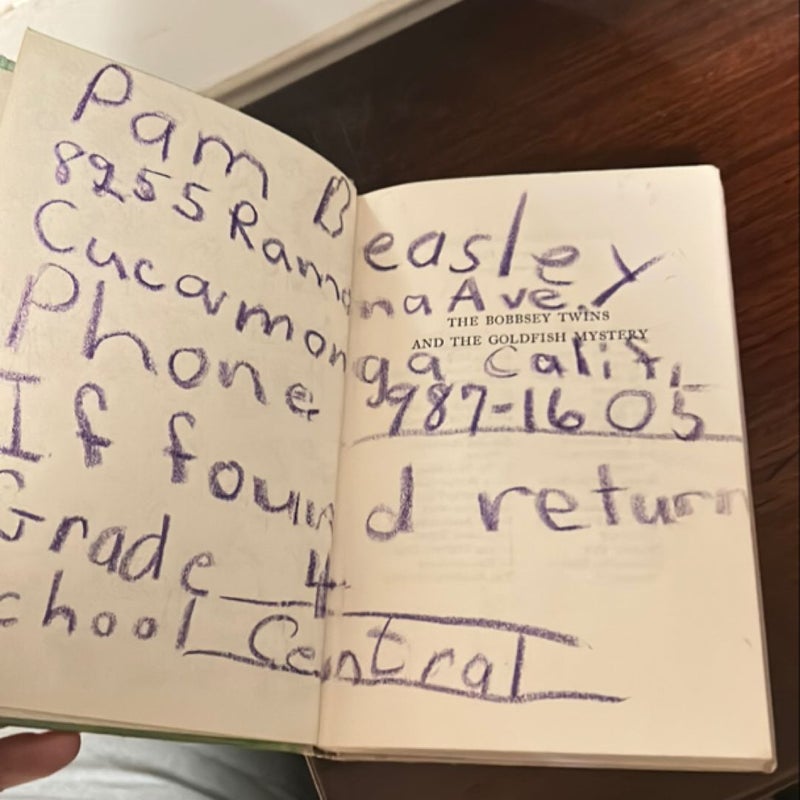 Pam Beasley
8255 Ramona Ave.
THE BOBBSEY TWINS
AND THE GOLDFISH MYSTERY
Cucamonga Calif.
Phone 987-1605
If found return
Grade 4
chool Central